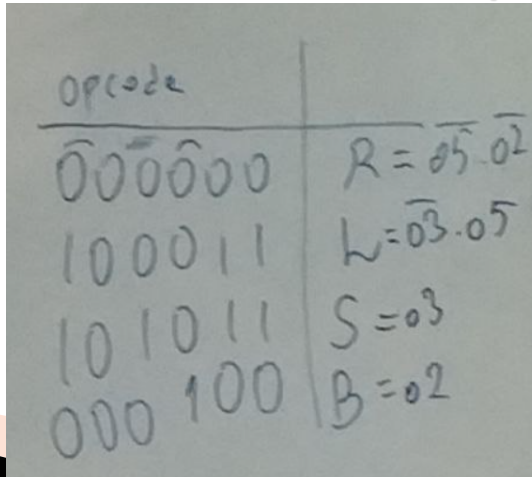 opcode
0̅00̅0̅00 R = o̅5̅.o̅2̅
100011 L = o̅3̅.o5
101011 S = o3
000100 B = o2